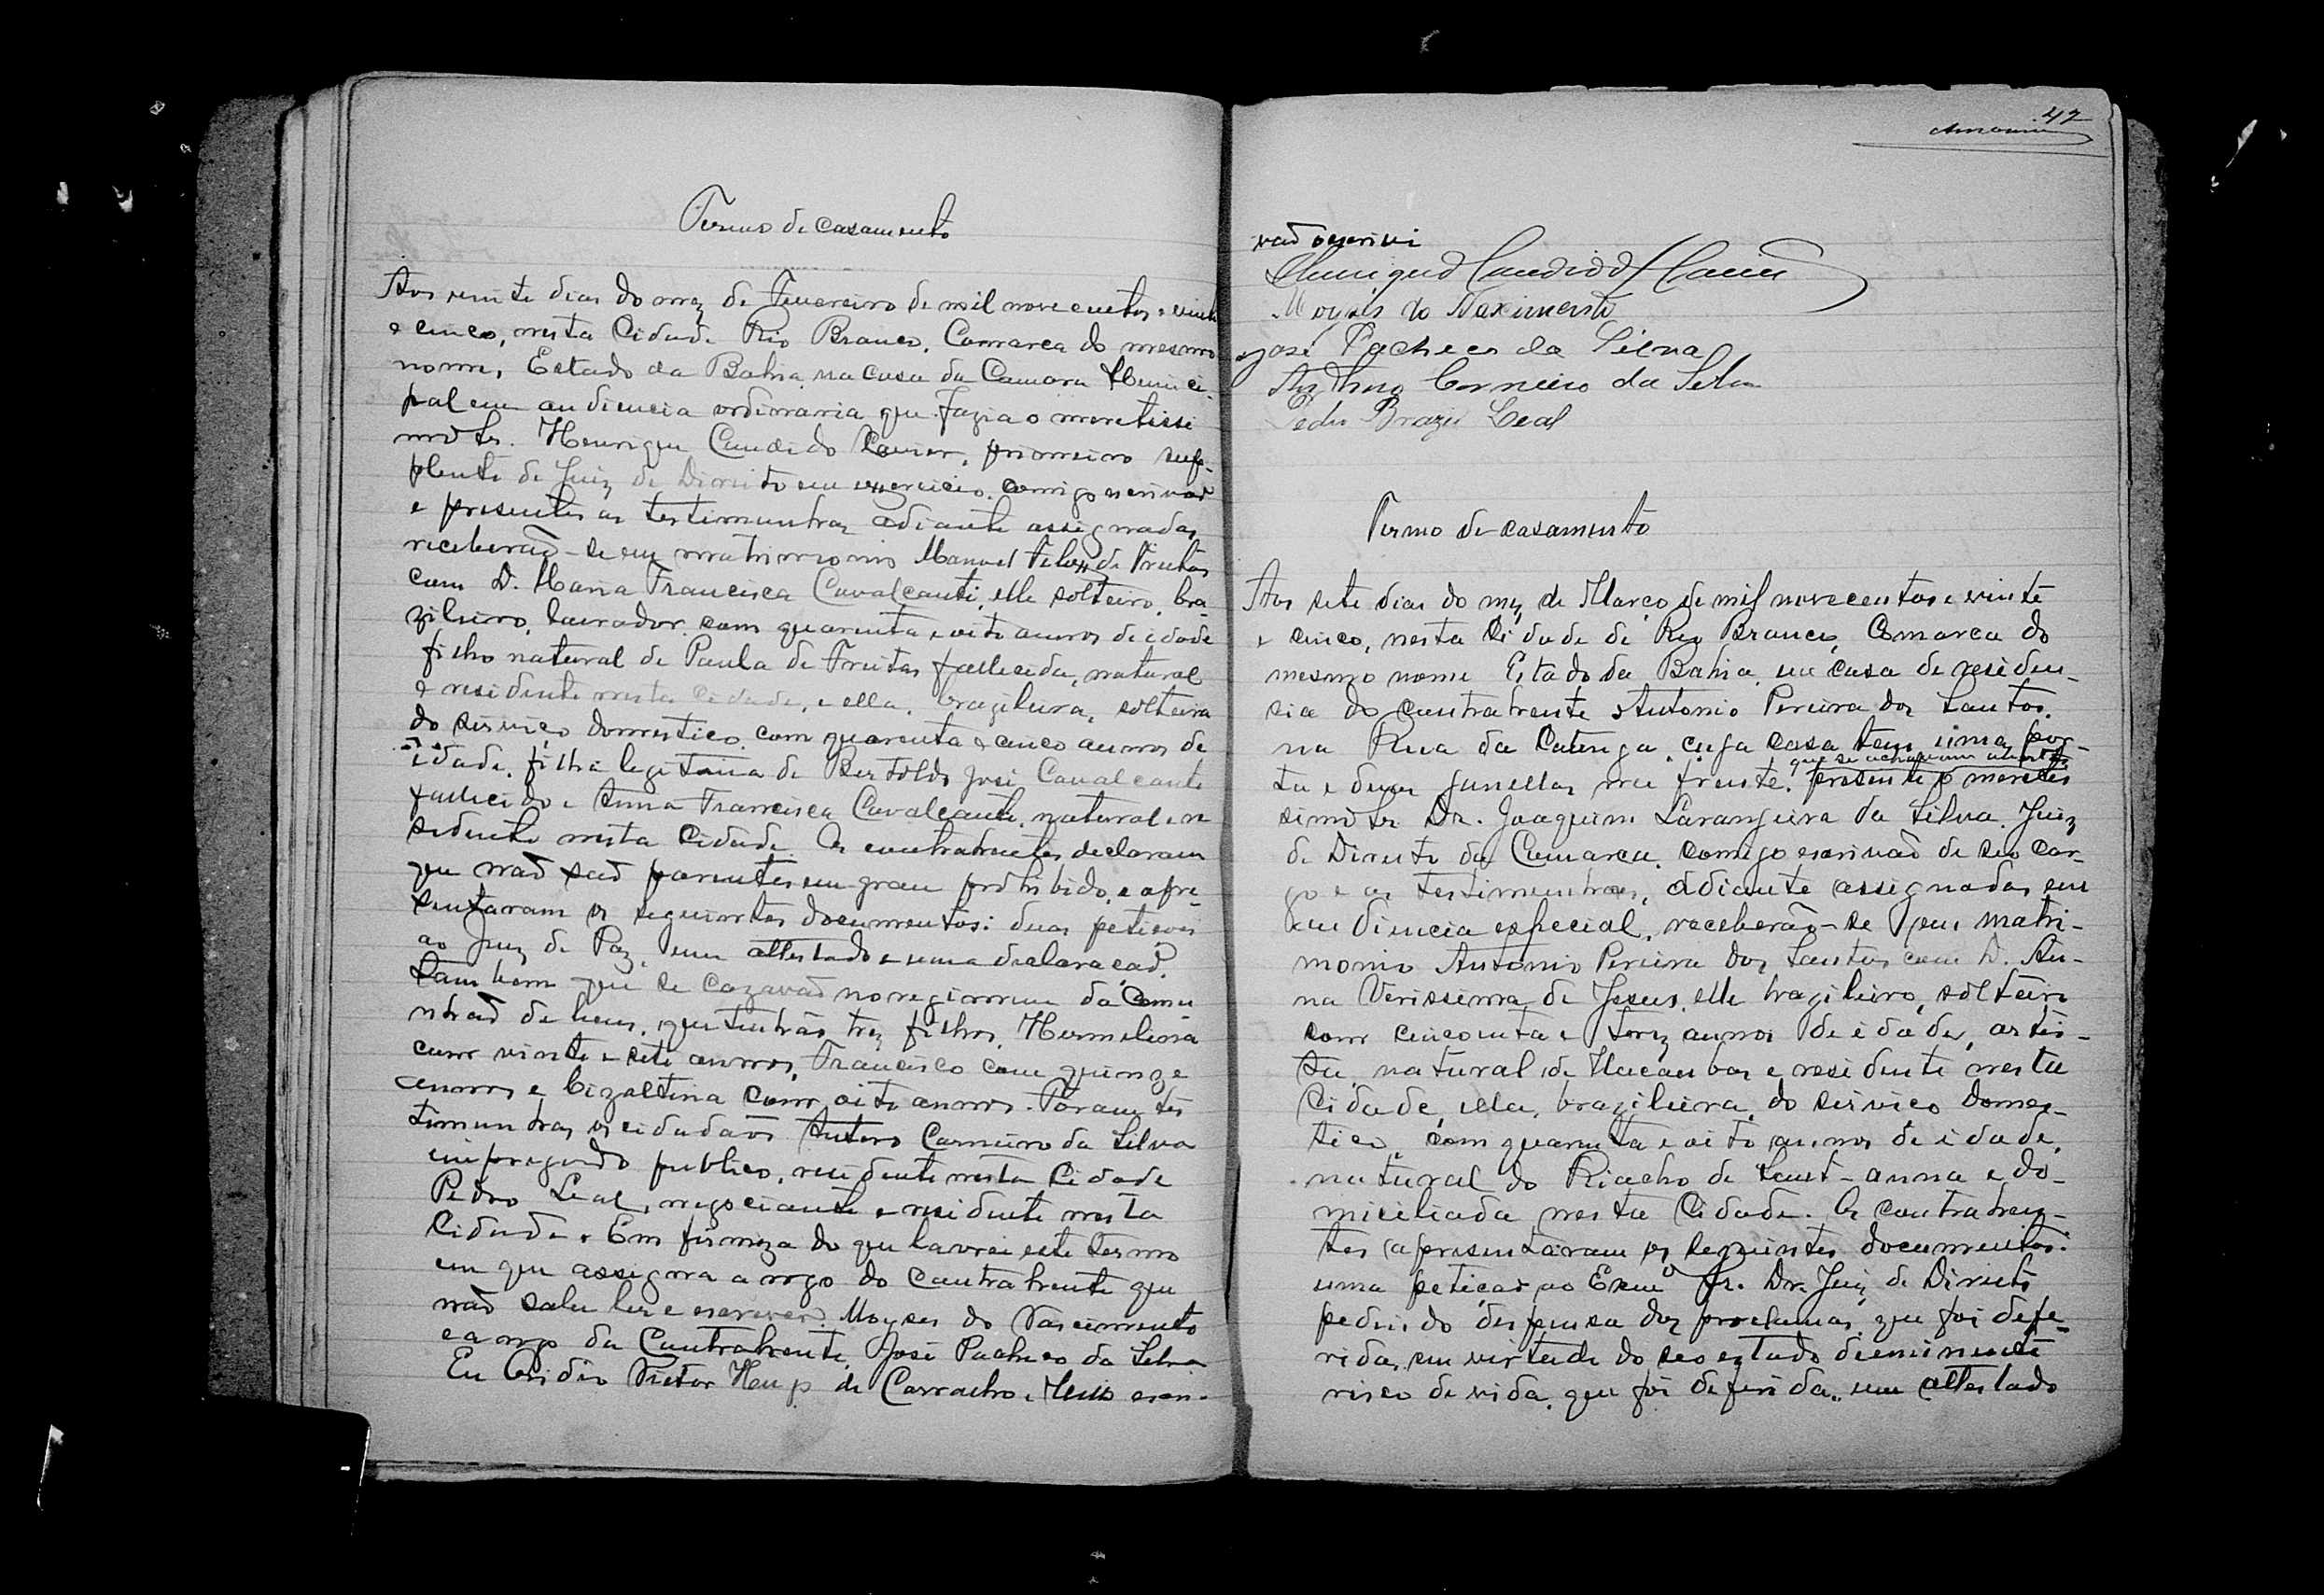 Termo de casamento
Aos vinte dias do mez de Fevereiro de mil nove centos e vinte
e cinco, nesta Cidade Rio Branco, Comarca do mesmo
nome, Estado da Bahia na casa da Camara Munici-
pal em audiencia ordinaria que fazia o meretissi
mo Sr. Henrique Candido Xavier, primeiro sup-
plente de Juiz de Direito em exercicio, comigo escrivaõ
e presentes as testimunhas adiante assignadas
receberaõ-se em matrimonio Manoel Felix de Freitas
com D. Maria Francisca Cavalcanti, elle solteiro, bra-
zileiro, lavrador, com quarenta e oito annos de idade
filho natural de Paula de Freitas fallecida, natural
e residente nesta Cidade, e ella, brazileira, solteira
do serviço domestico com quarenta e cinco annos de
idade, filha legitima de Bertoldo José Cavalcante
fallecido e Anna Francisca Cavalcante, natural e re
sidente nesta Cidade Os contrahentes declaram
que naõ saõ parentes em grau prohibido, e apre-
sentaram os seguintes documentos: duas petições
ao Juiz de Paz, um attestado e uma declaraçaõ.
Tambem que se cazavaõ no regimem da Comu
nhaõ de bens, que tinhão trez filhos, Hermelina
com vinte e sete annos, Francisco com quinze
annos e com oito annos. Foram tes
timunhas os cidadaõs Antero Carneiro da Silva
empregado publico, residente nesta Cidade
Pedro Leal, negociante e residente nesta
Cidade. Em firmeza do que lavrei este termo
em que assigna a rogo do Contrahente que
naõ sabe ler e escrever Moyses do Nascimento
e a rogo da Contrahente, José Pacheco da Silva
Eu Victor de Carvalho e Mello escri-
42
vaõ o escrivi
Henrique Candido Xavier
Moyses do Nascimento
José Pacheco da Silva
Carneiro da Silva
Pedro Brazil Leal
Termo de casamento
Aos sete dias do mez de Março de mil novecentos e vinte
e cinco, nesta Cidade de Rio Branco, Comarca do
mesmo nome Estado da Bahia, na casa de residen-
cia do contrahente Antonio Pereira dos Santos,
na Rua da Catinga, cuja casa tem uma por-
que se achavam abertas
ta e duas janellas na frente, presente o meretis
simo Sr. Dr. Joaquim Laranjeira da Silva, Juiz
de Direito da Comarca, comigo escrivaõ de seo car-
go e as testimunhas, adiante assignadas em
audiencia especial, receberão-se em matri-
monio Antonio Pereira dos Santos com D. An-
na Verissima de Jesus, elle brazileiro, solteiro
com cincoenta e trez annos de idade, artis-
ta, natural de Macaubas e residente nesta
Cidade, ella, brazileira, do serviço domes-
tico, com quarenta e oito annos de idade,
natural do Riacho de Sant-anna e do-
miciliada nesta Cidade. Os contrahen-
tes apresentaram os seguintes documentos:
uma petiçaõ ao Exmº Sr. Dr. Juiz de Direito
pedindo dispensa dos proclamas, que foi defe-
rida, em virtude do seo estado de eminente
risco de vida, que foi deferida, um attestado